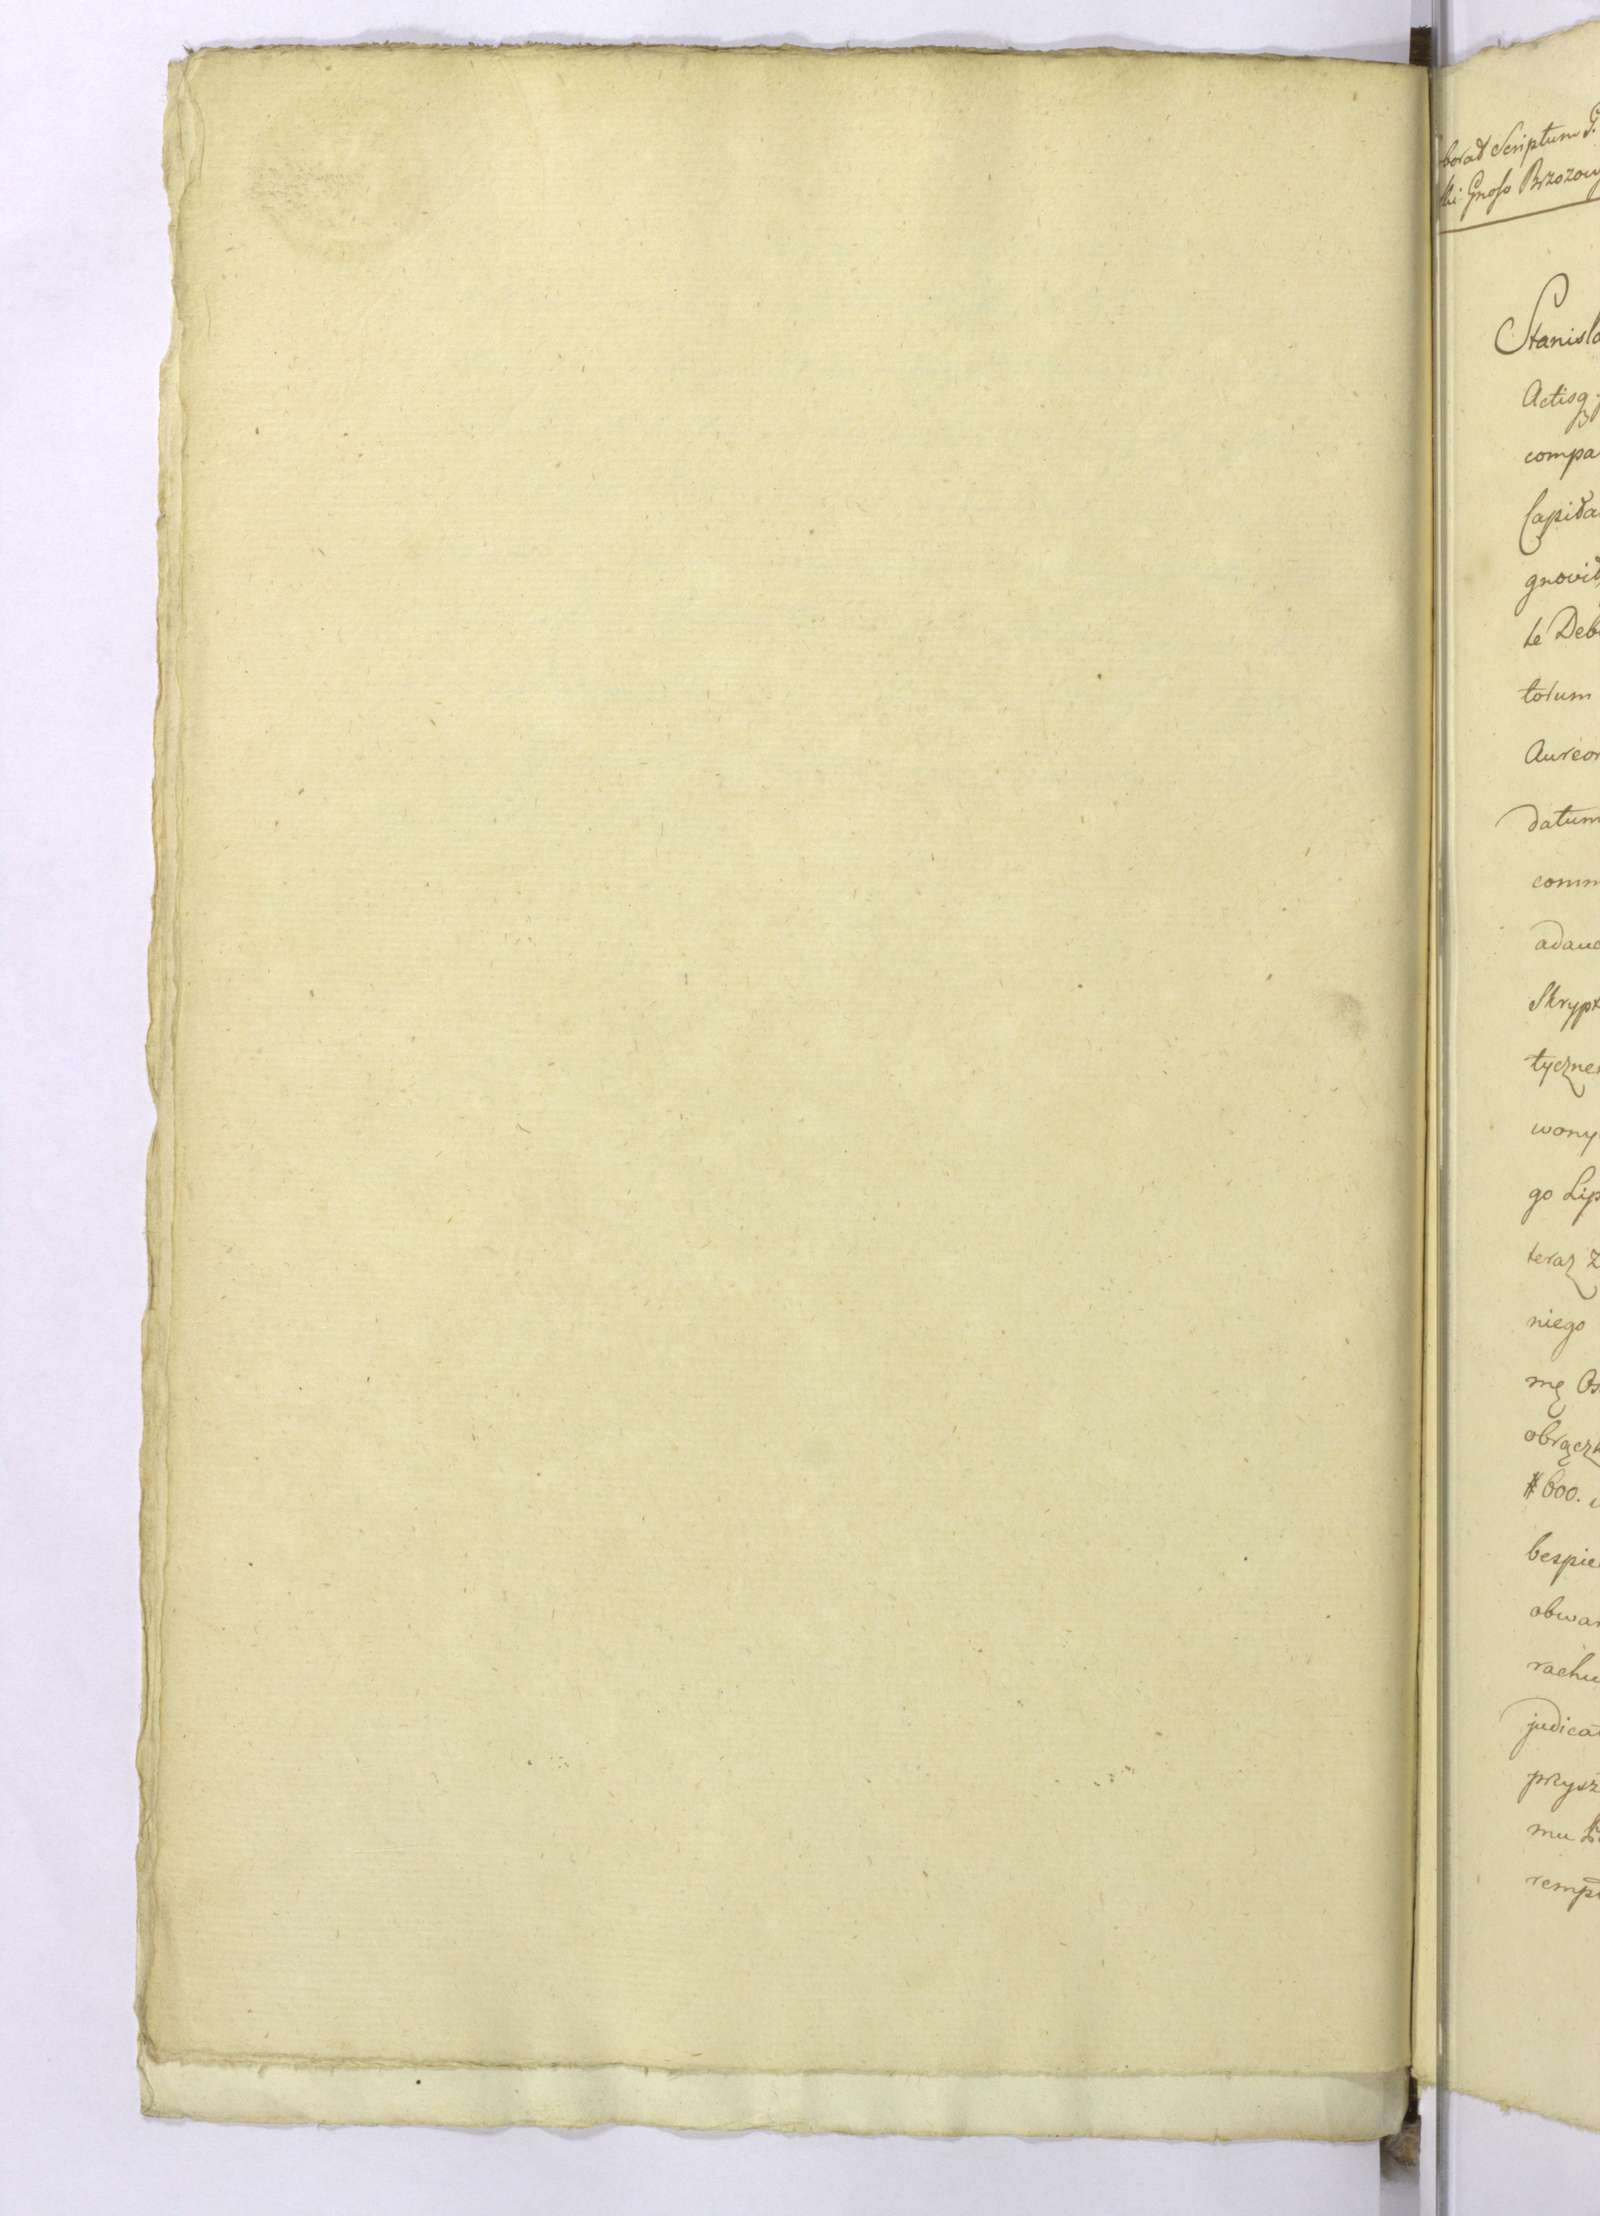 borat Scriptum G.
ski Gnoso Brzozow
Stanisla
Actisq.
compa
Capita
gnovit
te Deb
torum
Aureor
datum
comm
adauc
Skrypt
tyczne
wony
go Lip
teraz z
niego
mę Os
obrączk
# 600.
bespie
obwar
rachu
judica
przysz
mu
rempt